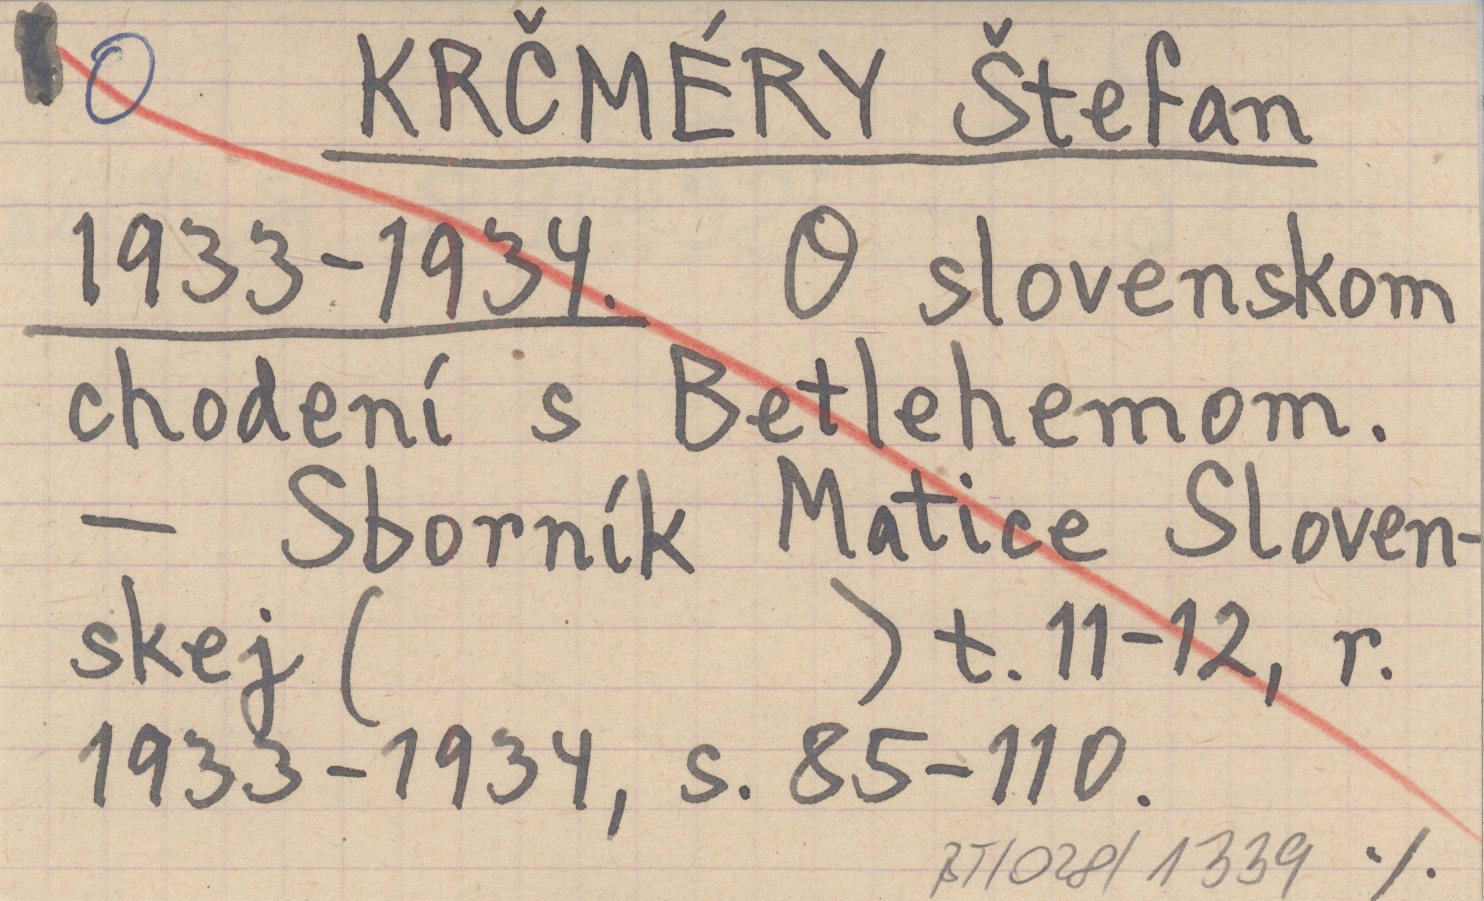 O KRČMÉRY Štefan
1933-1934. O slovenskom
chodení s Betlehemom.
— Sborník Matice Sloven-
skej ( ) t. 11-12, r.
1933-1934, s. 85-110.
BT/028/1339 ./.